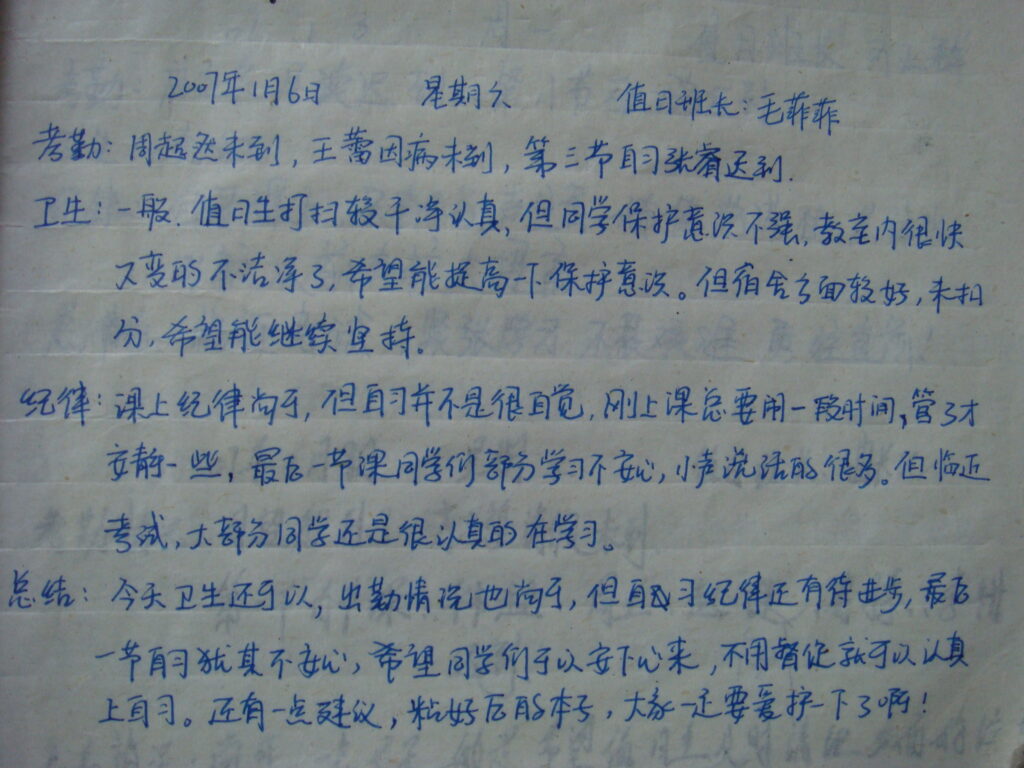 2007年1月6日 星期六 值日班长:毛菲菲
考勤:周起然未到,王蕾因病未到,第三节自习张睿迟到.
卫生:一般.值日生打扫较干净认真,但同学保护意识不强,教室内很快
又变的不洁净了,希望能提高一下保护意识。但宿舍方面较好,未扣
分,希望能继续坚持。
纪律:课上纪律尚可,但自习并不是很自觉,刚上课总要用一段时间,管了才
安静一些,最后一节课同学们部分学习不安心,小声说话的很多。但临近
考试,大部分同学还是很认真的在学习。
总结:今天卫生还可以,出勤情况也尚可,但自习纪律还有待进步,最后
一节自习犹其不安心,希望同学们可以安下心来,不用督促就可以认真
上自习。还有一点建议,粘好后的本子,大家一定要爱护一下了啊!